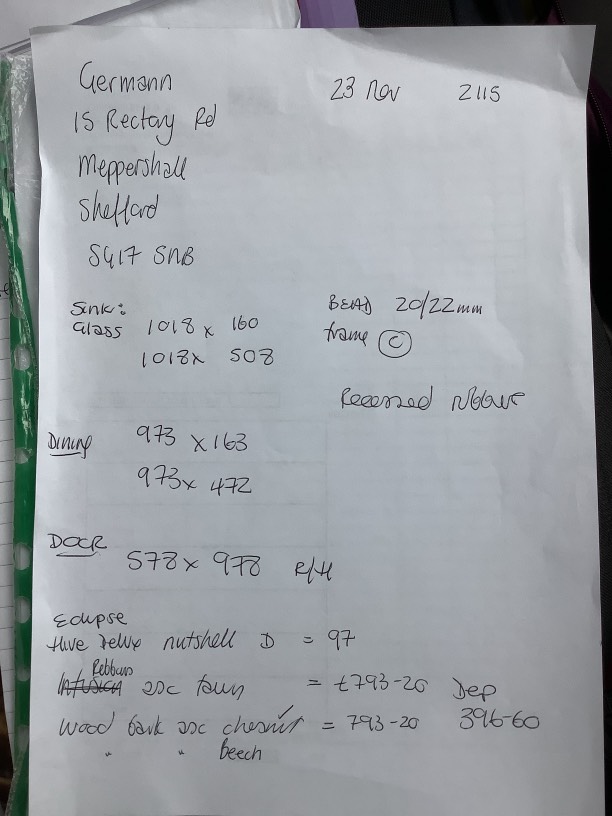 Germann 23 Nov 2115
15 Rectory Rd
Meppershall
Shefford
SG17 5NB
Sink: BEAD 20/22mm
Glass 1018 x 160 frame C
1018x 508
Recessed
Dining 973 x 163
973x 472
DOOR
578x 978 R/H
Eclipse
Hive Delux nutshell D = 97
Infusion = £793-20 Dep
wood bark asc chesnut ✓ = 793-20 396-60
" " beech